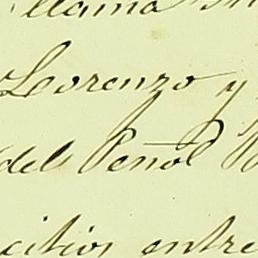 llama
Lorenzo y
del Peñol
citios entre